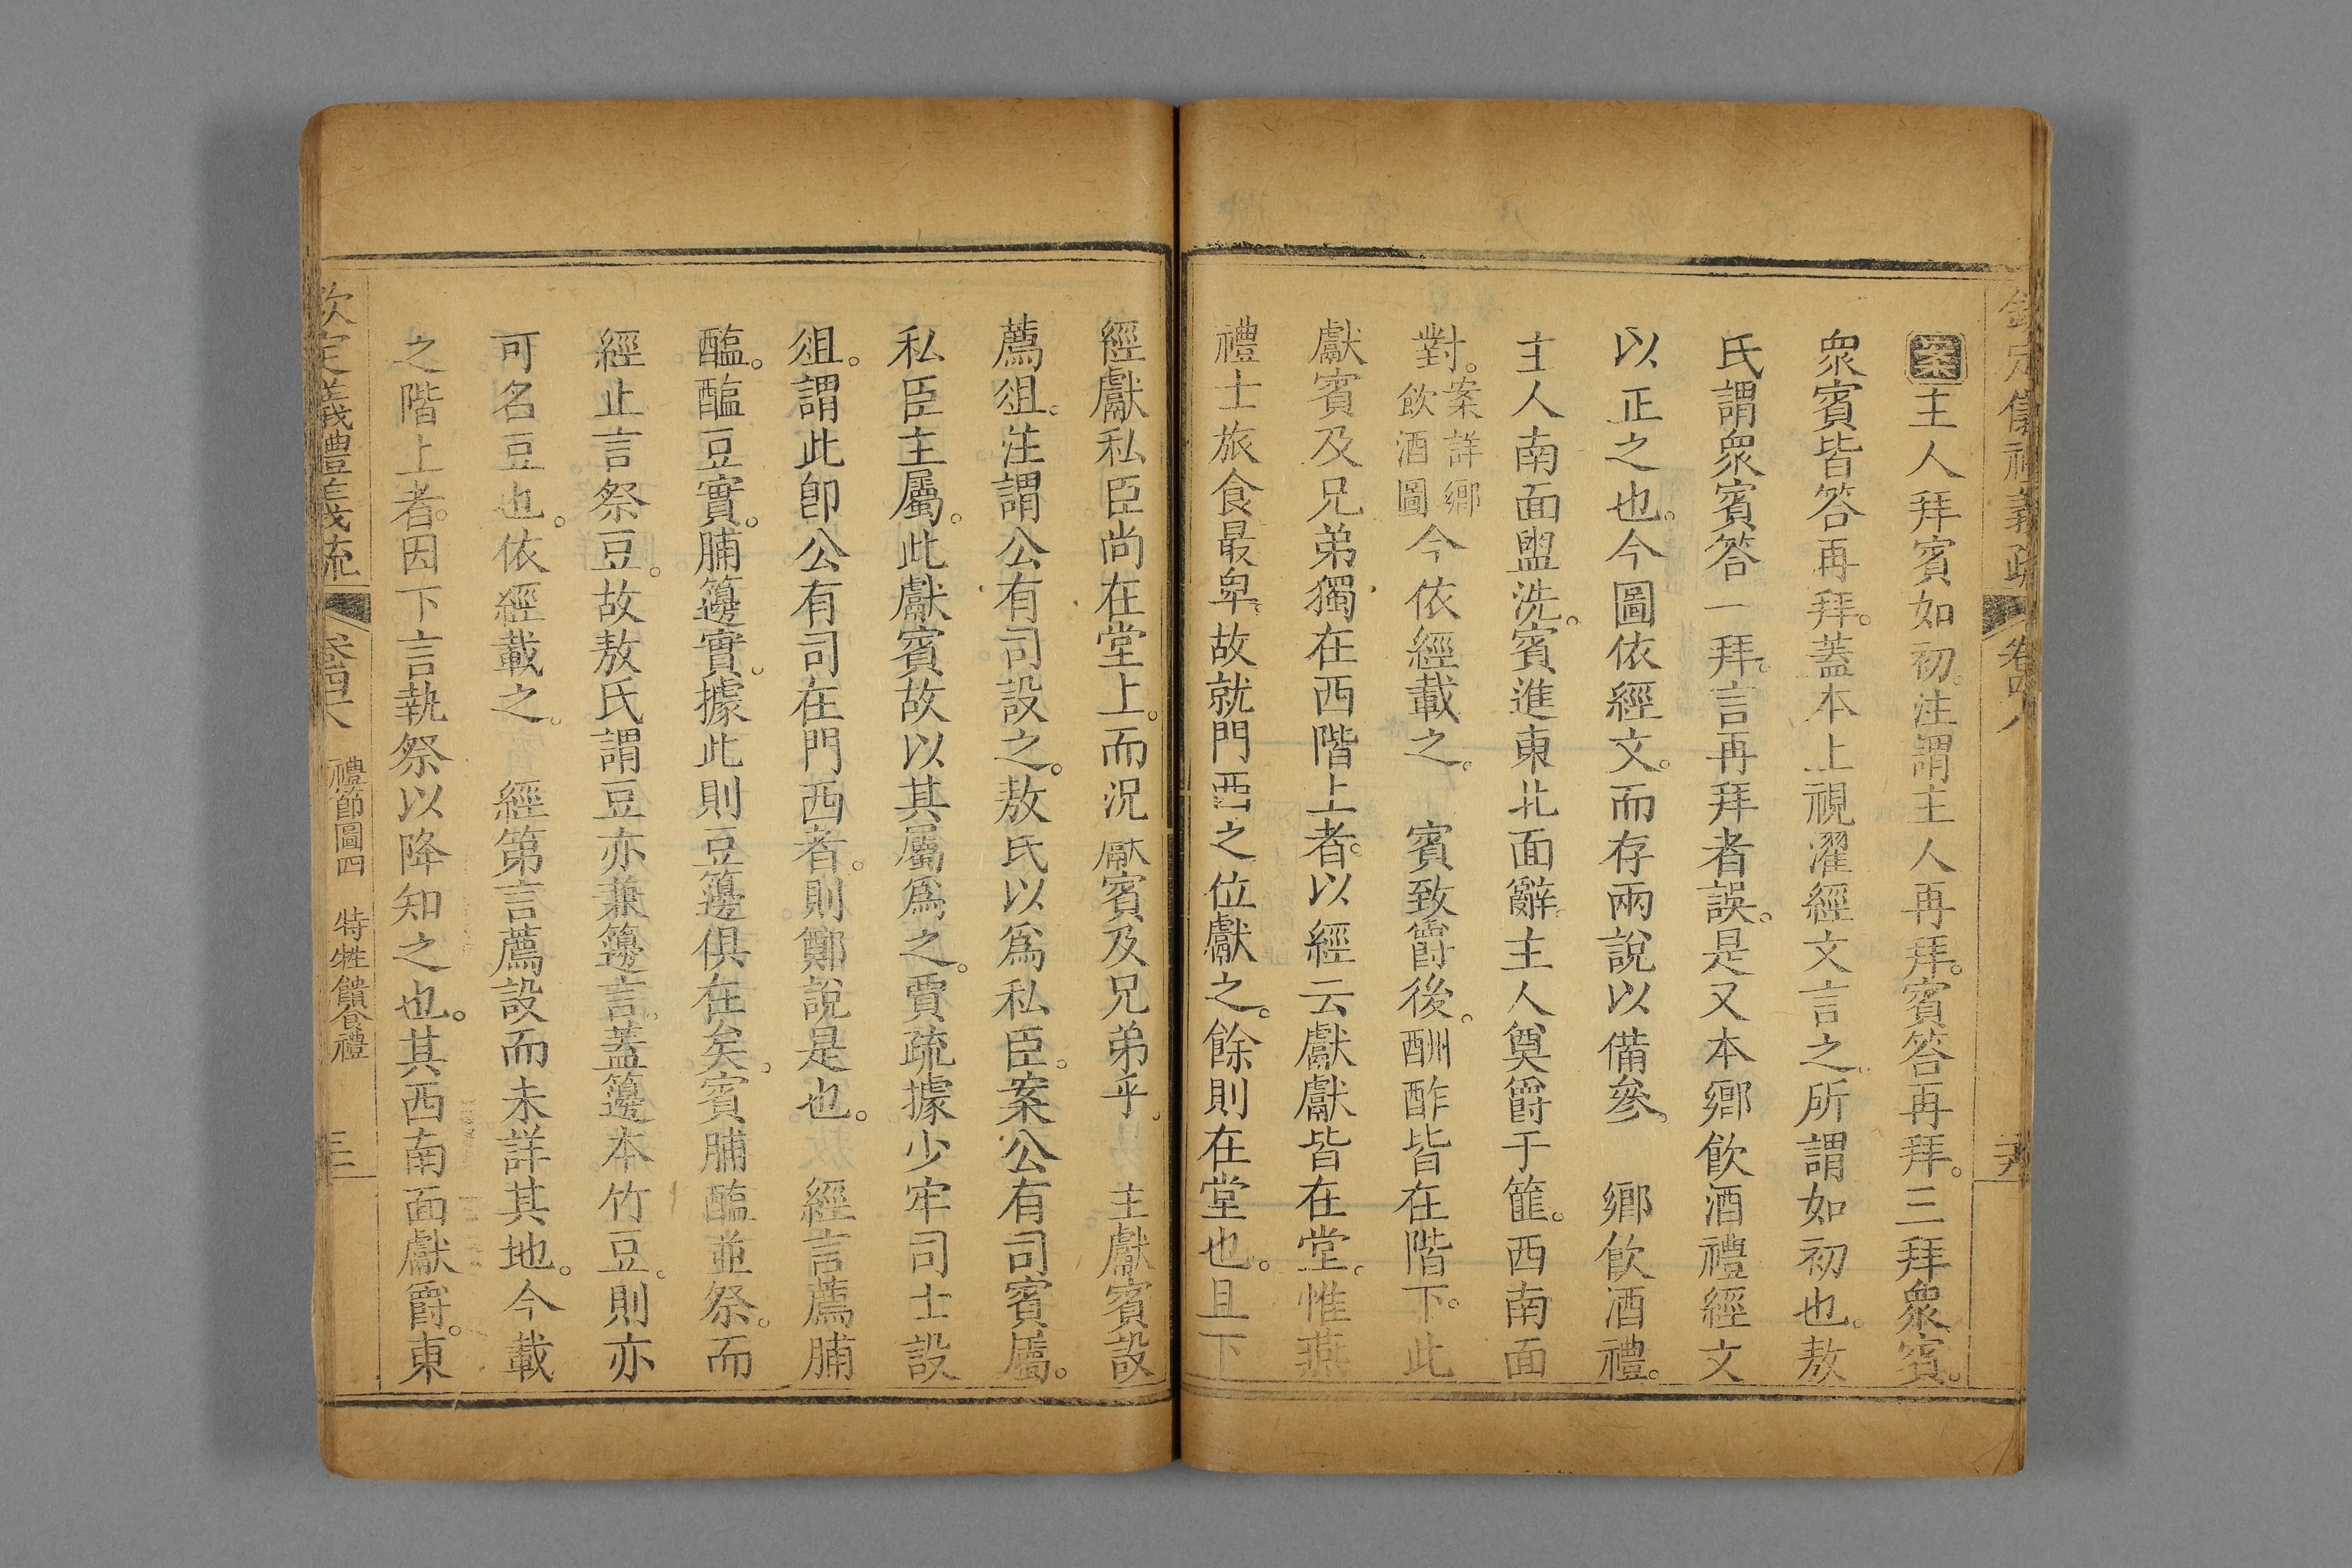 欽定儀禮義疏 卷四八
案主人拜賓如初。注謂主人再拜。賓答再拜。三拜衆賓。
衆賓皆答再拜。蓋本上視濯經文言之。所謂如初也。敖
氏謂衆賓答一拜。言再拜者誤。是又本鄉飮酒禮經文
以正之也。今圖依經文。而存兩說以備參。 鄉飮酒禮。
主人南面盥洗。賓進東北面辭。主人奠爵于篚。西南面
對。案詳鄉飮酒圖今依經載之。 賓致爵後。酬酢皆在階下。此
獻賓及兄弟獨在西階上者。以經云獻獻皆在堂。惟燕
禮士旅食最卑。故就門西之位獻之。餘則在堂也。且下
經獻私臣尚在堂上。而況獻賓及兄弟乎。 主獻賓設
薦俎。注謂公有司設之。敖氏以爲私臣。案公有司賓屬。
私臣主屬。此獻賓故以其屬爲之。賈疏據少牢司士設
俎。謂此卽公有司在門西者。則鄭說是也。 經言薦脯
醢。醢豆實。脯籩實。據此則豆籩俱在矣。賓脯醢並祭。而
經止言祭豆。故敖氏謂豆亦兼籩言。蓋籩本竹豆。則亦
可名豆也。依經載之。 經第言薦設而未詳其地。今載
之階上者。因下言執祭以降知之也。其西南面獻爵。東
欽定儀禮義疏 卷四八 禮節圖四 特牲饋食禮